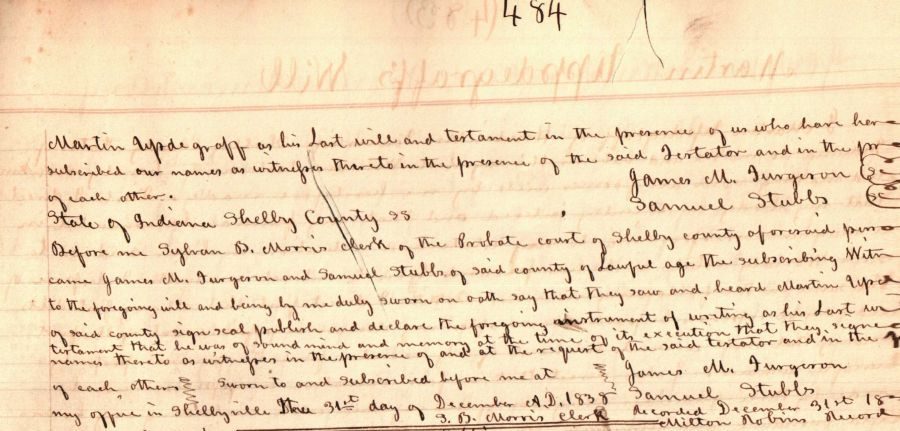 484
Martin Updegraff's Will
Martin Updegraff as his Last will and testament in the presence of us who have her=
subscribed our names as witnesses thereto in the presence of the said Testator and in the pr
of each other.
James M. Furgeron
Samuel Stubbs
State of Indiana Shelby County ss
Before me Sylvan B. Morris Clerk of the Probate court of Shelby county aforesaid pers
came James M. Furgeron and Samuel Stubbs of said county of Lawful age the subscribing Witn
to the foregoing will and being by me duly sworn on oath say that they saw and heard Martin Upd
of said county sign seal publish and declare the foregoing instrument of writing as his Last w
testament that he was of sound mind and memory at the time of its execution that they signe
names thereto as witnesses in the presence of and at the request of the said testator and in the
of each others Sworn to and subscribed before me at
James M. Furgeron
my office in Shelbyville this 31st day of December A.D. 1838
Samuel Stubbs
S. B. Morris Clerk
Recorded December 31st 18
Milton Robins Record